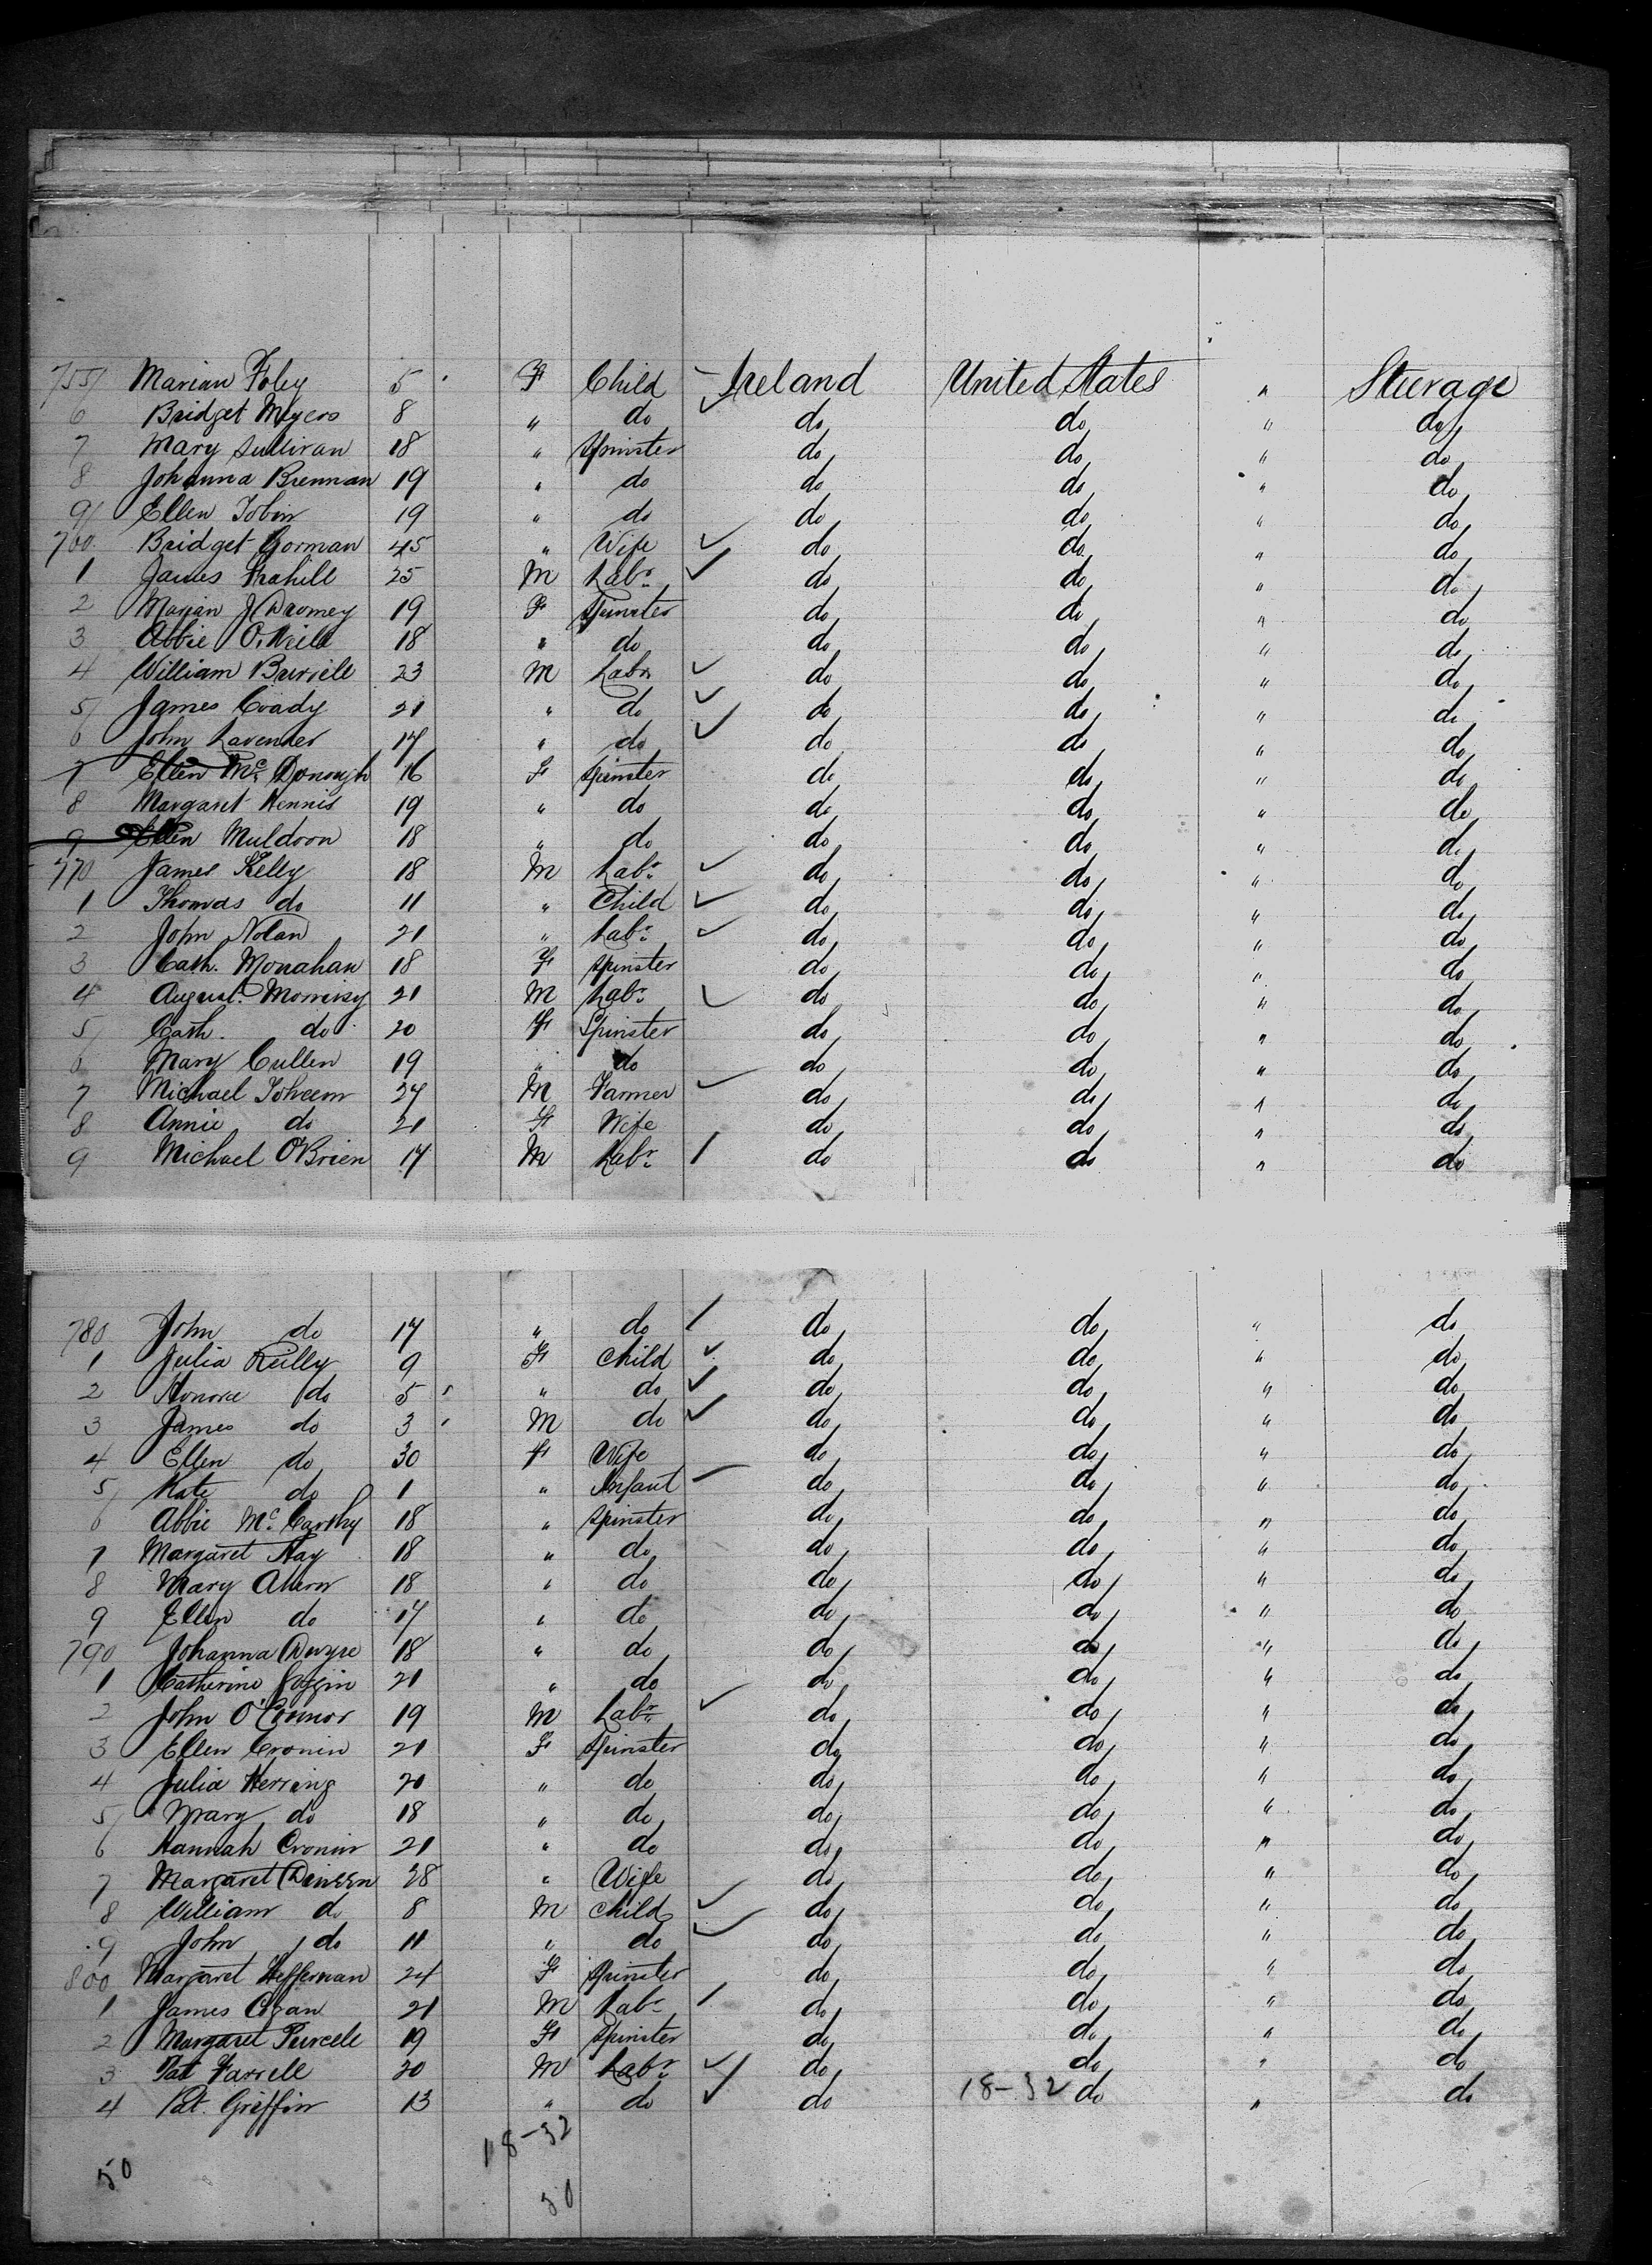 755 Marian Foley 5 F Child Ireland United States " Steerage
6 Bridget Myers 8 " do do do " do
7 Mary Sullivan 18 " Spinster do do " do
8 Johanna Brennan 19 " do do do " do
9 Ellen Tobin 19 " do do do " do
760 Bridget Gorman 45 " Wife do do " do
1 James Frahill 25 M Labr do do " do
2 Marian J Dromey 19 F Spinster do do " do
3 Abbie O'Neill 18 " do do do " do
4 William 23 M Labr do do " do
5 James Coady 21 " do do do " do
6 John Lavender 17 " do do do " do
7 Ellen Mc Donough 16 F Spinster do do " do
8 Margaret Hennis 19 " do do do " do
9 Ellen Muldoon 18 " do do do " do
770 James Kelly 18 M Labr do do " do
1 Thomas do 11 " Child do do " do
2 John Nolan 21 " Labr do do " do
3 Cath. Monahan 18 F Spinster do do " do
4 August. Morrisy 21 M Labr do do " do
5 Cath. do 20 F Spinster do do " do
6 Mary Cullen 19 " do do do " do
7 Michael 27 M Farmer do do " do
8 Annie do 21 F Wife do do " do
9 Michael O'Brien 17 M Labr do do " do
780 John do 17 " do do do " do
1 Julia Reilly 9 F Child do do " do
2 Honora do 5 " do do do " do
3 James do 3 M do do do " do
4 Ellen do 30 F Wife do do " do
5 Kate do 1 " Infant do do " do
6 Abbie Mc Carthy 18 " Spinster do do " do
7 Margaret Hay 18 " do do do " do
8 Mary Ahern 18 " do do do " do
9 Ellen do 17 " do do do " do
790 Johanna Dwyre 18 " do do do " do
1 Catherine Goggin 21 " do do do " do
2 John O'Connor 19 M Labr do do " do
3 Ellen Cronin 21 F Spinster do do " do
4 Julia Herring 20 " do do do " do
5 Mary do 18 " do do do " do
6 Hannah Cronin 21 " do do do " do
7 Margaret Dineen 28 " Wife do do " do
8 William do 8 M Child do do " do
9 John do 11 " do do do " do
800 Margaret Heffernan 24 F Spinster do do " do
1 James Cogan 21 M Labr do do " do
2 Margaret Purcell 19 F Spinster do do " do
3 Pat Farrell 20 M Labr do do " do
4 Pat. Griffin 13 " do do 18-32 do " do
18-32
50
50